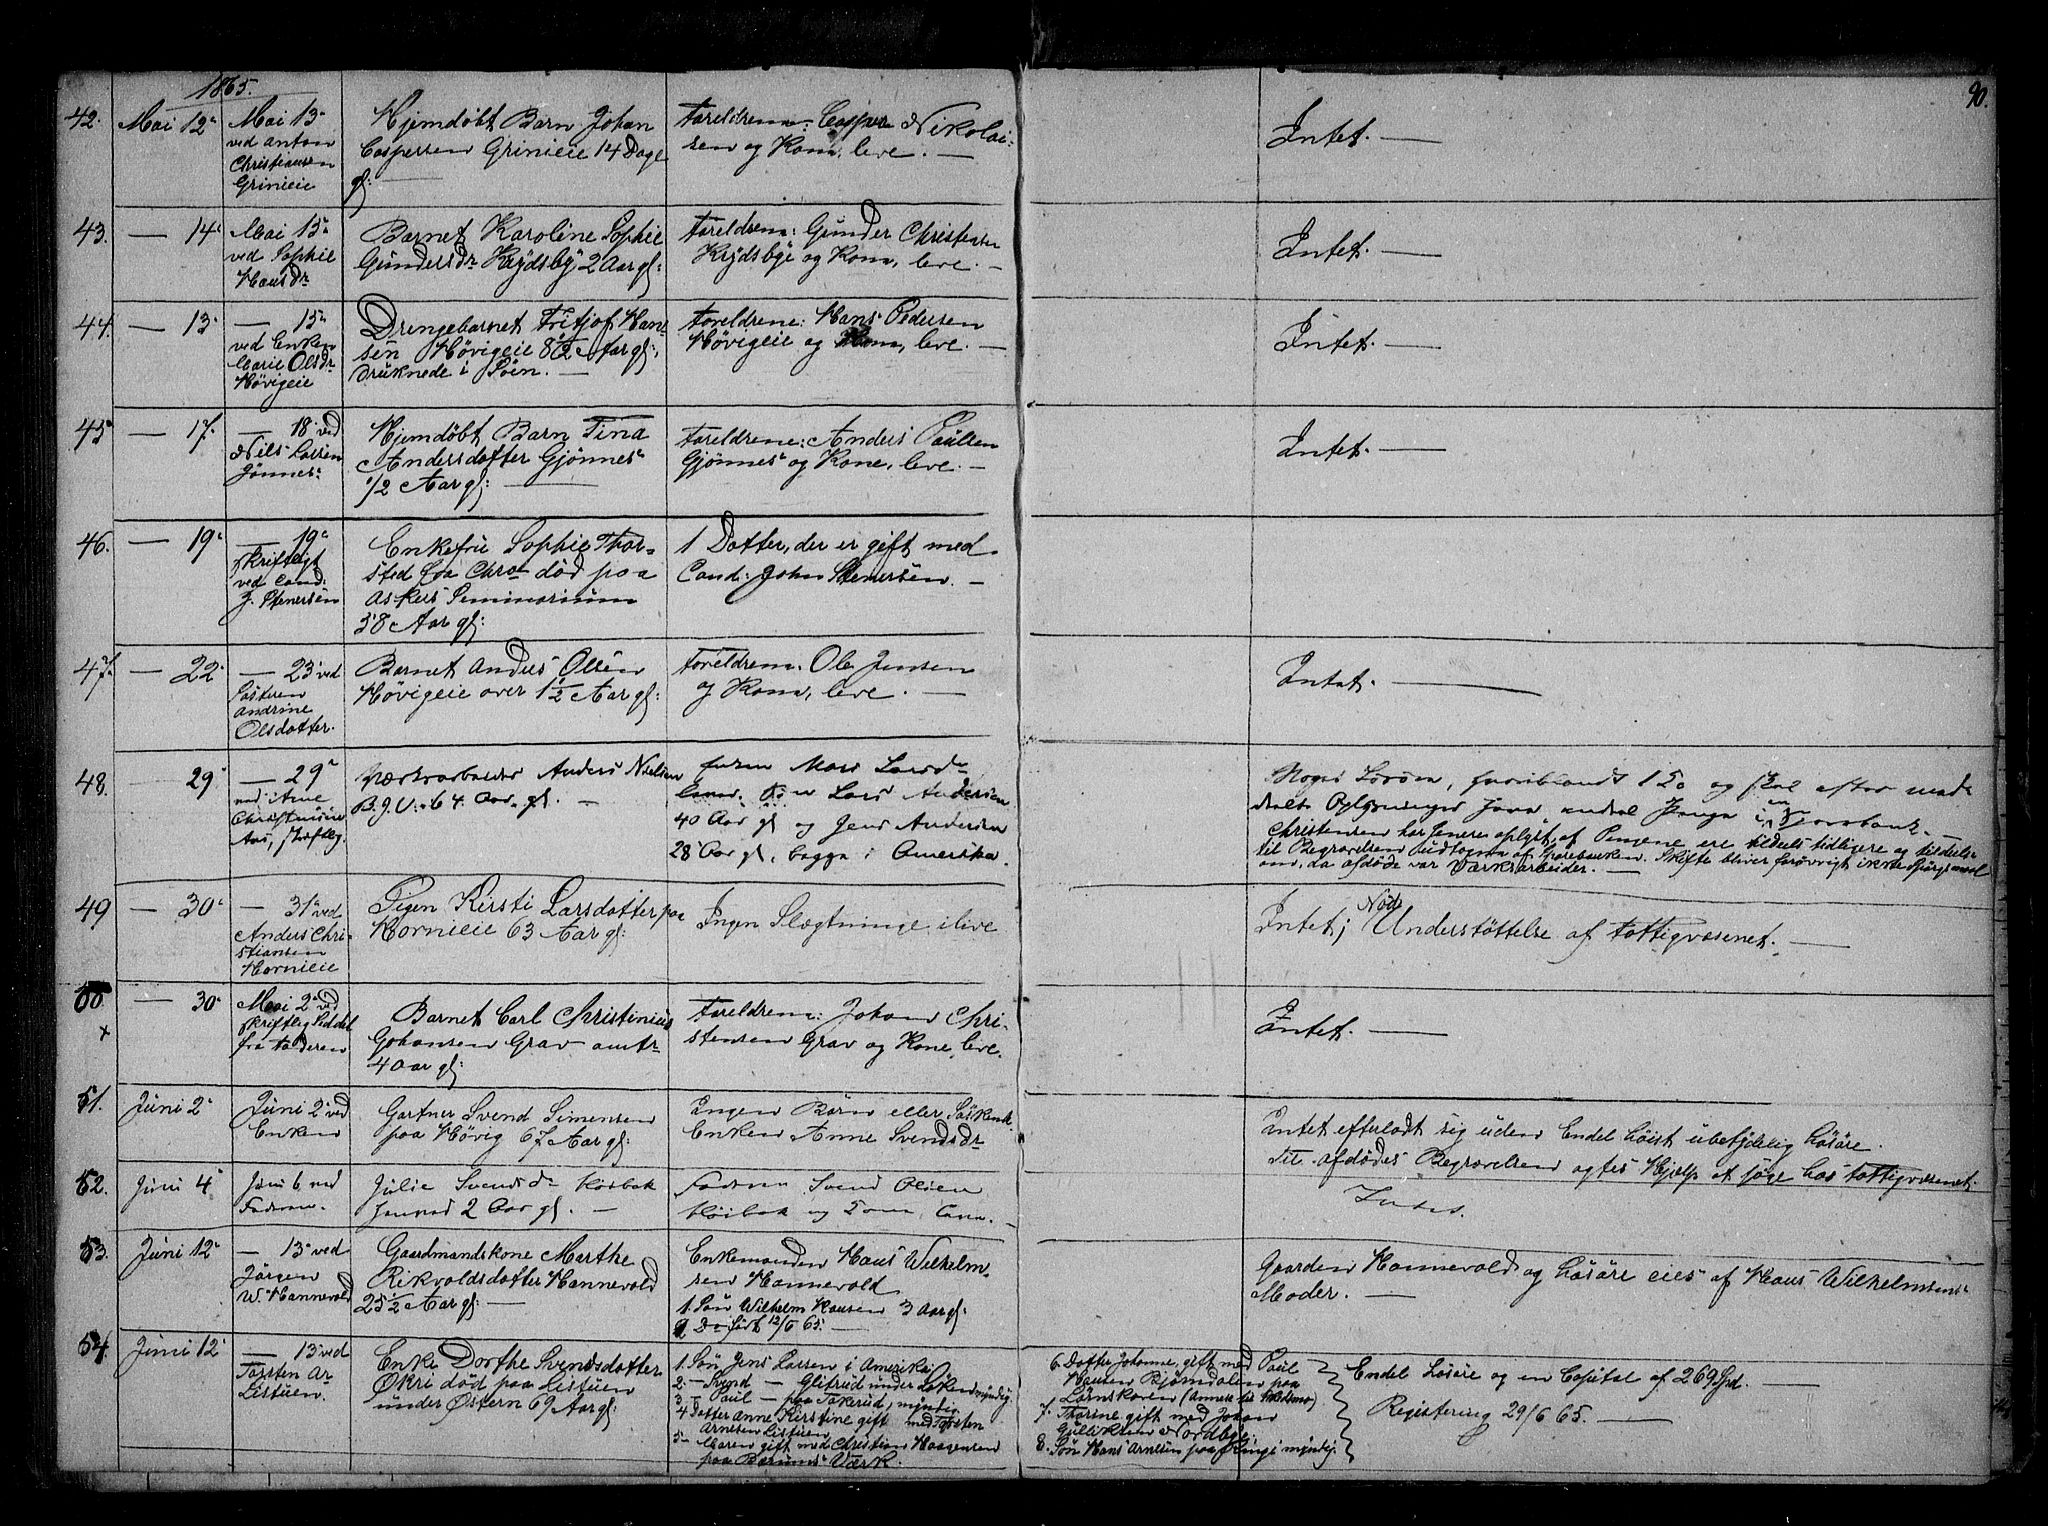 1865.
90.
42.
Mai 12
Mai 13
ved Anton
Christiansen
Grinieie
Hjemdøbt Barn Johan
Caspersen Grinieie 14 Dage
gl:
Foreldrene: Casper Nikolai-
sen og Kone, leve. —
Intet. —
43.
— 14
Mai 15
ved Sophie
Hansdr
Barnet Karoline Sophie
Gundersdr Krydsby 2 Aar gl:
Foreldrene: Gunder Christensen
Krydsbye og Kone, leve. —
Intet. —
44.
— 13
— 15
ved Enken
Marie Olsdr
Høvigeie
Drengebarnet Fritjof Han-
sen Høvigeie 8 1/2 Aar gl:,
druknede i Søen. —
Foreldrene: Hans Pedersen
Høvigeie og Kone, leve. —
Intet. —
45
— 17.
— 18 ved
Nils Larsen
Jønnes
Hjemdøbt Barn Tina
Andersdatter Gjønnes
1/2 Aar gl: —
Foreldrene: Anders Paulsen
Gjønnes og Kone, leve. —
Intet. —
46.
— 19
— 19
skriftligt
ved Cand:
J. Stenersen
Enkefru Sophie Thor-
sted fra Chra død paa
Askers Seminarium
58 Aar gl:
1 Datter, der er gift med
Cand: John Stenersen. —
47.
— 22
— 23 ved
Søsteren
Andrine
Olsdatter.
Barnet Anders Olsen
Høvigeie over 1 1/2 Aar gl:
Foreldrene: Ole Jensen
og Kone, leve. —
Intet. —
48.
— 29
— 29
ved Arne
Christensen
Aas, skriftlig.
Værksarbeider Anders Nielsen
B.J.V. 64 Aar gl. —
Enken Mari Larsdr
lever. Søn Lars Andersen
40 Aar gl og Jens Andersen
28 Aar gl, begge i Amerika.
Noget Løsøre, 150 og skal efter med-
delte Oplysninger have endel Penge i en Sparebank. —
Christensen har senere oplyst, at Pengene ere tildels tidligere og tildels
til Begravelsen udtagne af Sparebanken. Skifte bliver forøvrigt ikke Spørgsmaal
om, da afdøde var Værksarbeider. —
49
— 30
— 31 ved
Anders Chri-
stiansen
Hornieie
Pigen Kirsti Larsdatter paa
Hornieie 63 Aar gl:
Ingen Slægtninge ilive
Intet; Nød Understøttelse af Fattigvæsenet. —
50.
x
— 30
Mai 2 ved
skriftlig Seddel
fra Faderen
Barnet Carl Christinius
Johansen Grav omtr
4 Aar gl:
Foreldrene: Johan Chri-
stensen Grav og Kone, leve.
Intet. —
51.
Juni 2
Juni 2 ved
Enken
Gartner Svend Simensen
paa Høvig 67 Aar gl:
Ingen Børn eller Søskende
Enken Anne Svendsdr
Intet efterladt sig uden Endel høist ubetydelig Løsøre.
Til afdødes Begravelsen agtes Hjelp at søge hos Fattigvæsenet.
52.
Juni 4
Juni 6 ved
Faderen.
Julie Svendsdr Høibak
2 Aar gl. —
Faderen Svend Olsen
Høibak og Kone, leve. —
Intet.
53.
Juni 12
— 13 ved
Jørgen
W. Hannevold
Gaardmandskone Marthe
Rikvoldsdatter Hannevold
25 1/2 Aar gl: —
Enkemanden Hans Wilhelm-
sen Hannevold
1. Søn Wilhelm Hansen 3 Aar gl:
2 Do født 12/6 65. —
Gaarden Hannevold og Løsøre eies af Hans Wilhelmsens
Moder. —
54.
Juni 12
— 13 ved
Torsten Ar
Listuen.
Enke Dorthe Svendsdatter
Økri død paa Listuen
under Østern 69 Aar gl:
1. Søn Jens Larsen i Amerika
2 — Svend — Glitrud under Løken myndig.
3 — Paul — paa Takerud, myndig
4 Datter Anne Kirstine gift med Torsten
Arnesen Listuen
5 — Maren gift med Christian Haagensen
paa Bærums Værk.
6. Datter Johanne, gift med Paul
Hansen Bjømdalen paa
Lørnskoven (Annex til Skedsmo)
7. Thorine gift med Johan
Gulliksen Nordby
8. Søn Hans Arnesen paa Ringi myndig.
Endel Løsøre og en Capital af 269 Spd. —
Registering 29/6 65. —